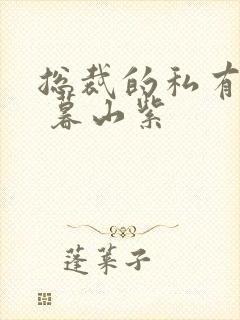 总裁的私有
暮山紫
蓬莱子